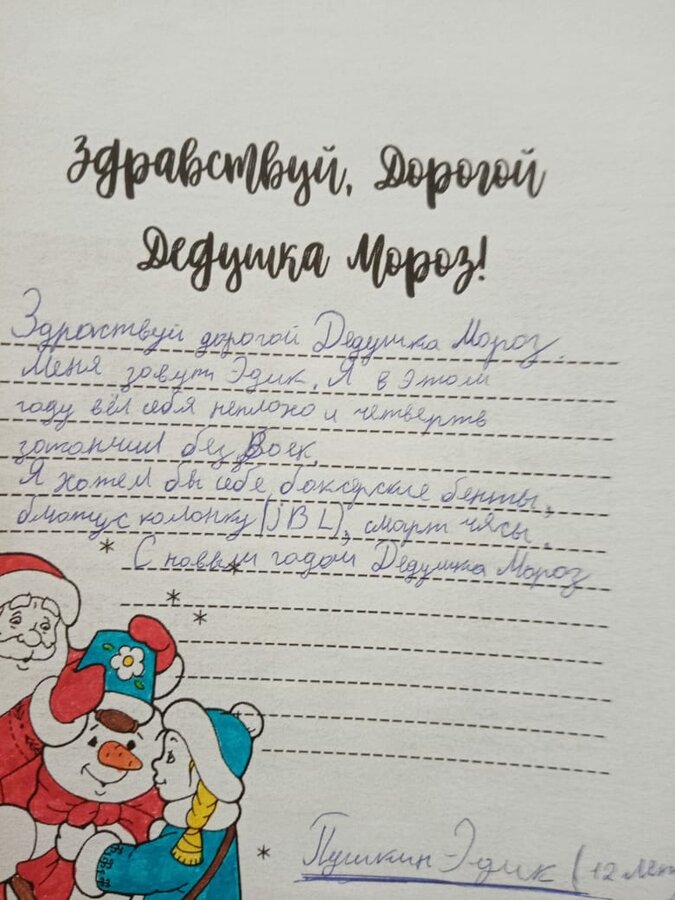 Здравствуй, Дорогой
Дедушка Мороз!
Здравствуй дорогой Дедушка Мороз.
Меня зовут Эдик. Я в этом
году вёл себя неплохо и четверть
закончил без двоек.
Я хотел бы себе боксерские бинты,
колонку (JBL), смарт часы.
С новым годом Дедушка Мороз
Пушкин Эдик (12 лет